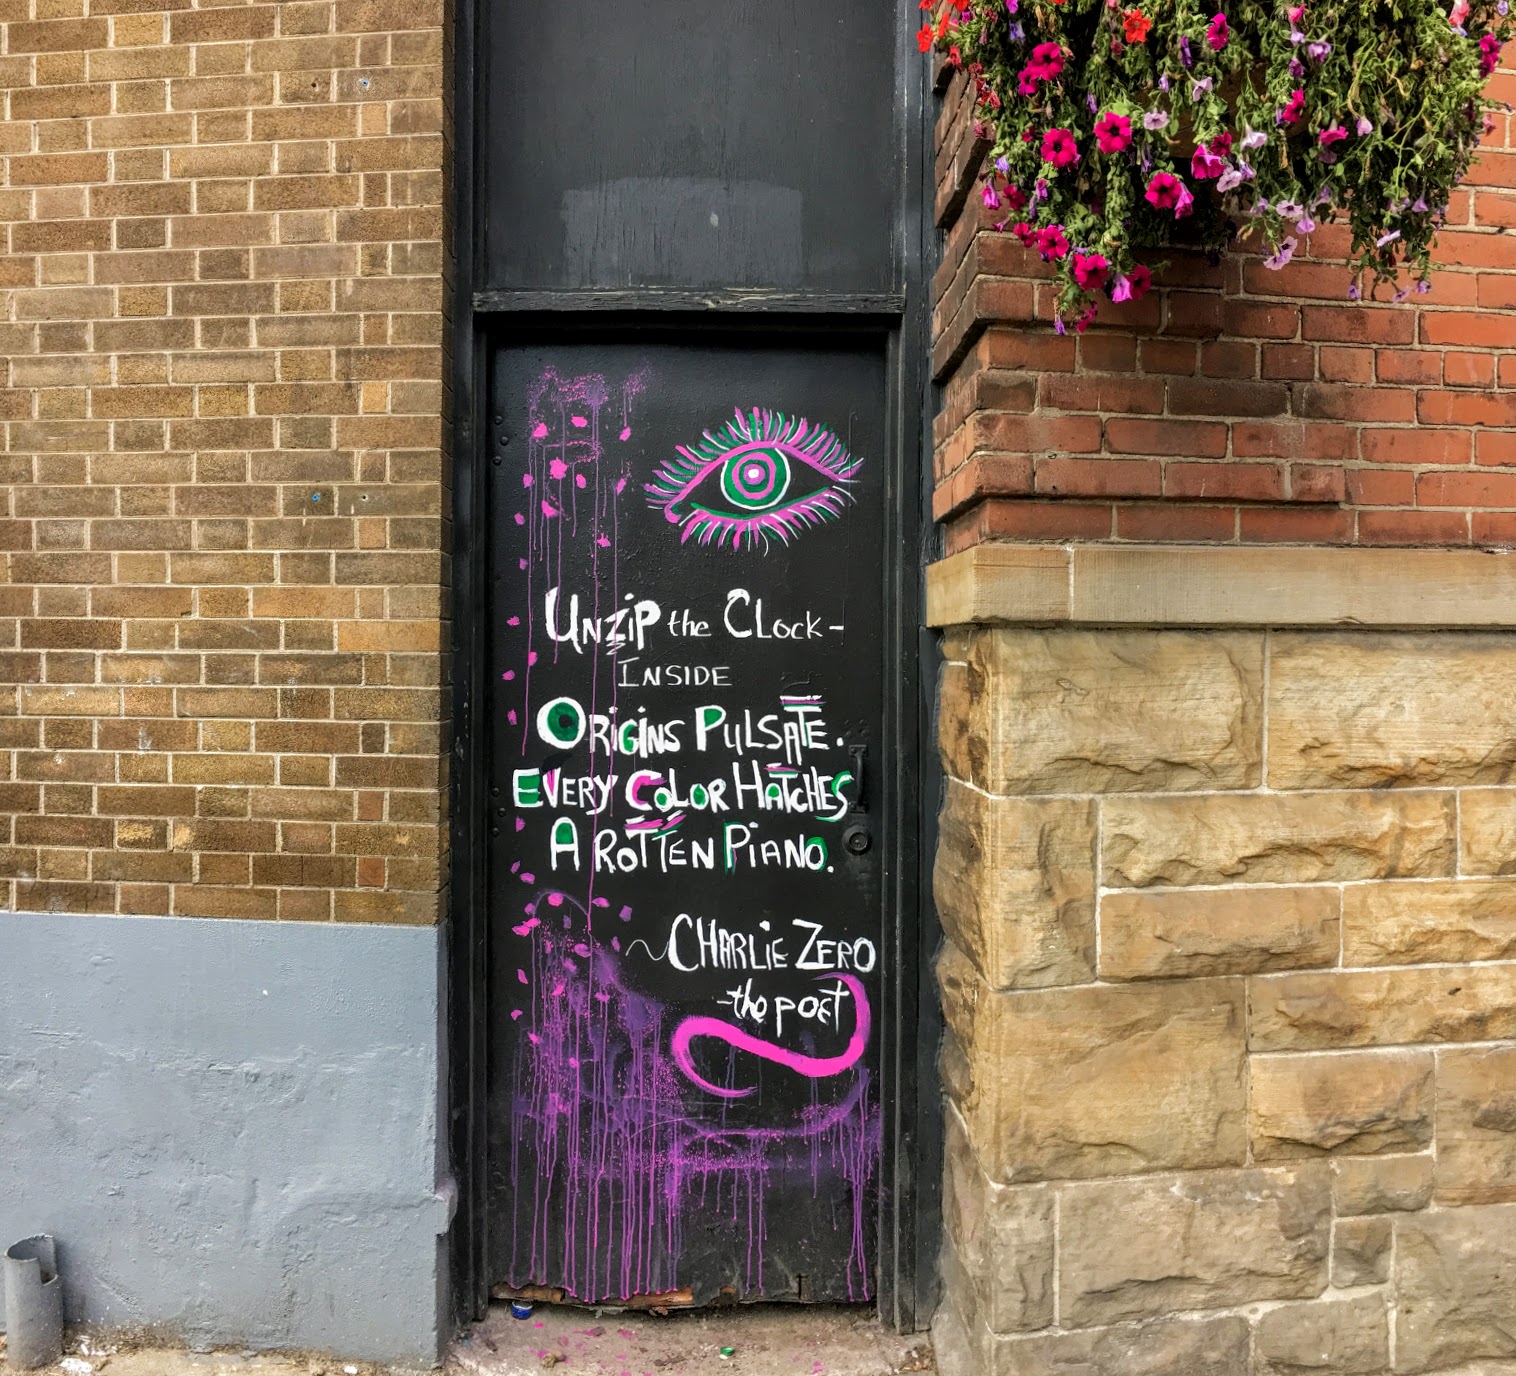 UNZiP the CLock-
INSIDE
ORiGiNS PULSATE.
EVERY COLOR HATCHES
A ROTTEN PiANO.
CHARLiE ZERO
-the poet